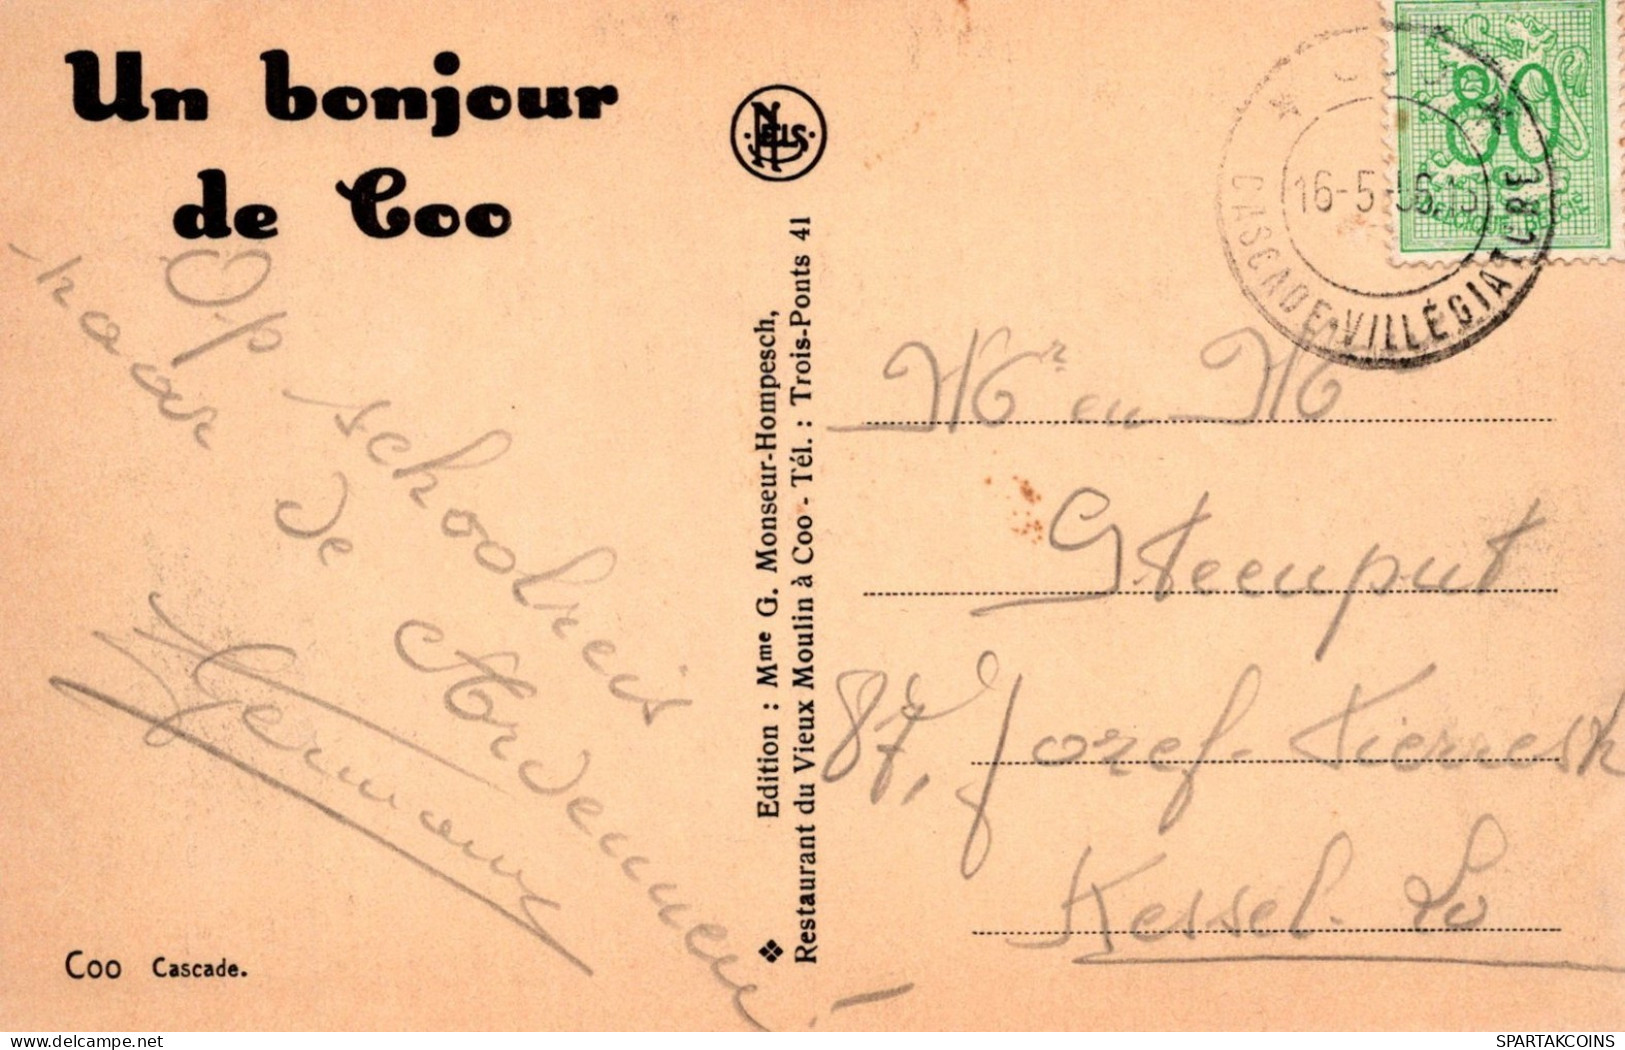 Un bonjour
de Coo
Op schoolreis
naar de Ardennen!
Germaine
Coo Cascade.
NELS
Edition : Mme G. Monseur-Hompesch,
❖ Restaurant du Vieux Moulin à Coo - Tél. : Trois-Ponts 41
COO
16-5-56.15
CASCADE-VILLÉGIATURE
80
BELGIQUE BELGIE
Mr en M
Steenput
87, Jozef Pierre
Kessel-Lo
SPARTAKCOINS